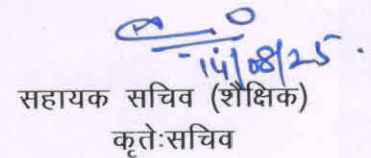 14/08/25.
सहायक सचिव (शैक्षिक)
कृतेःसचिव